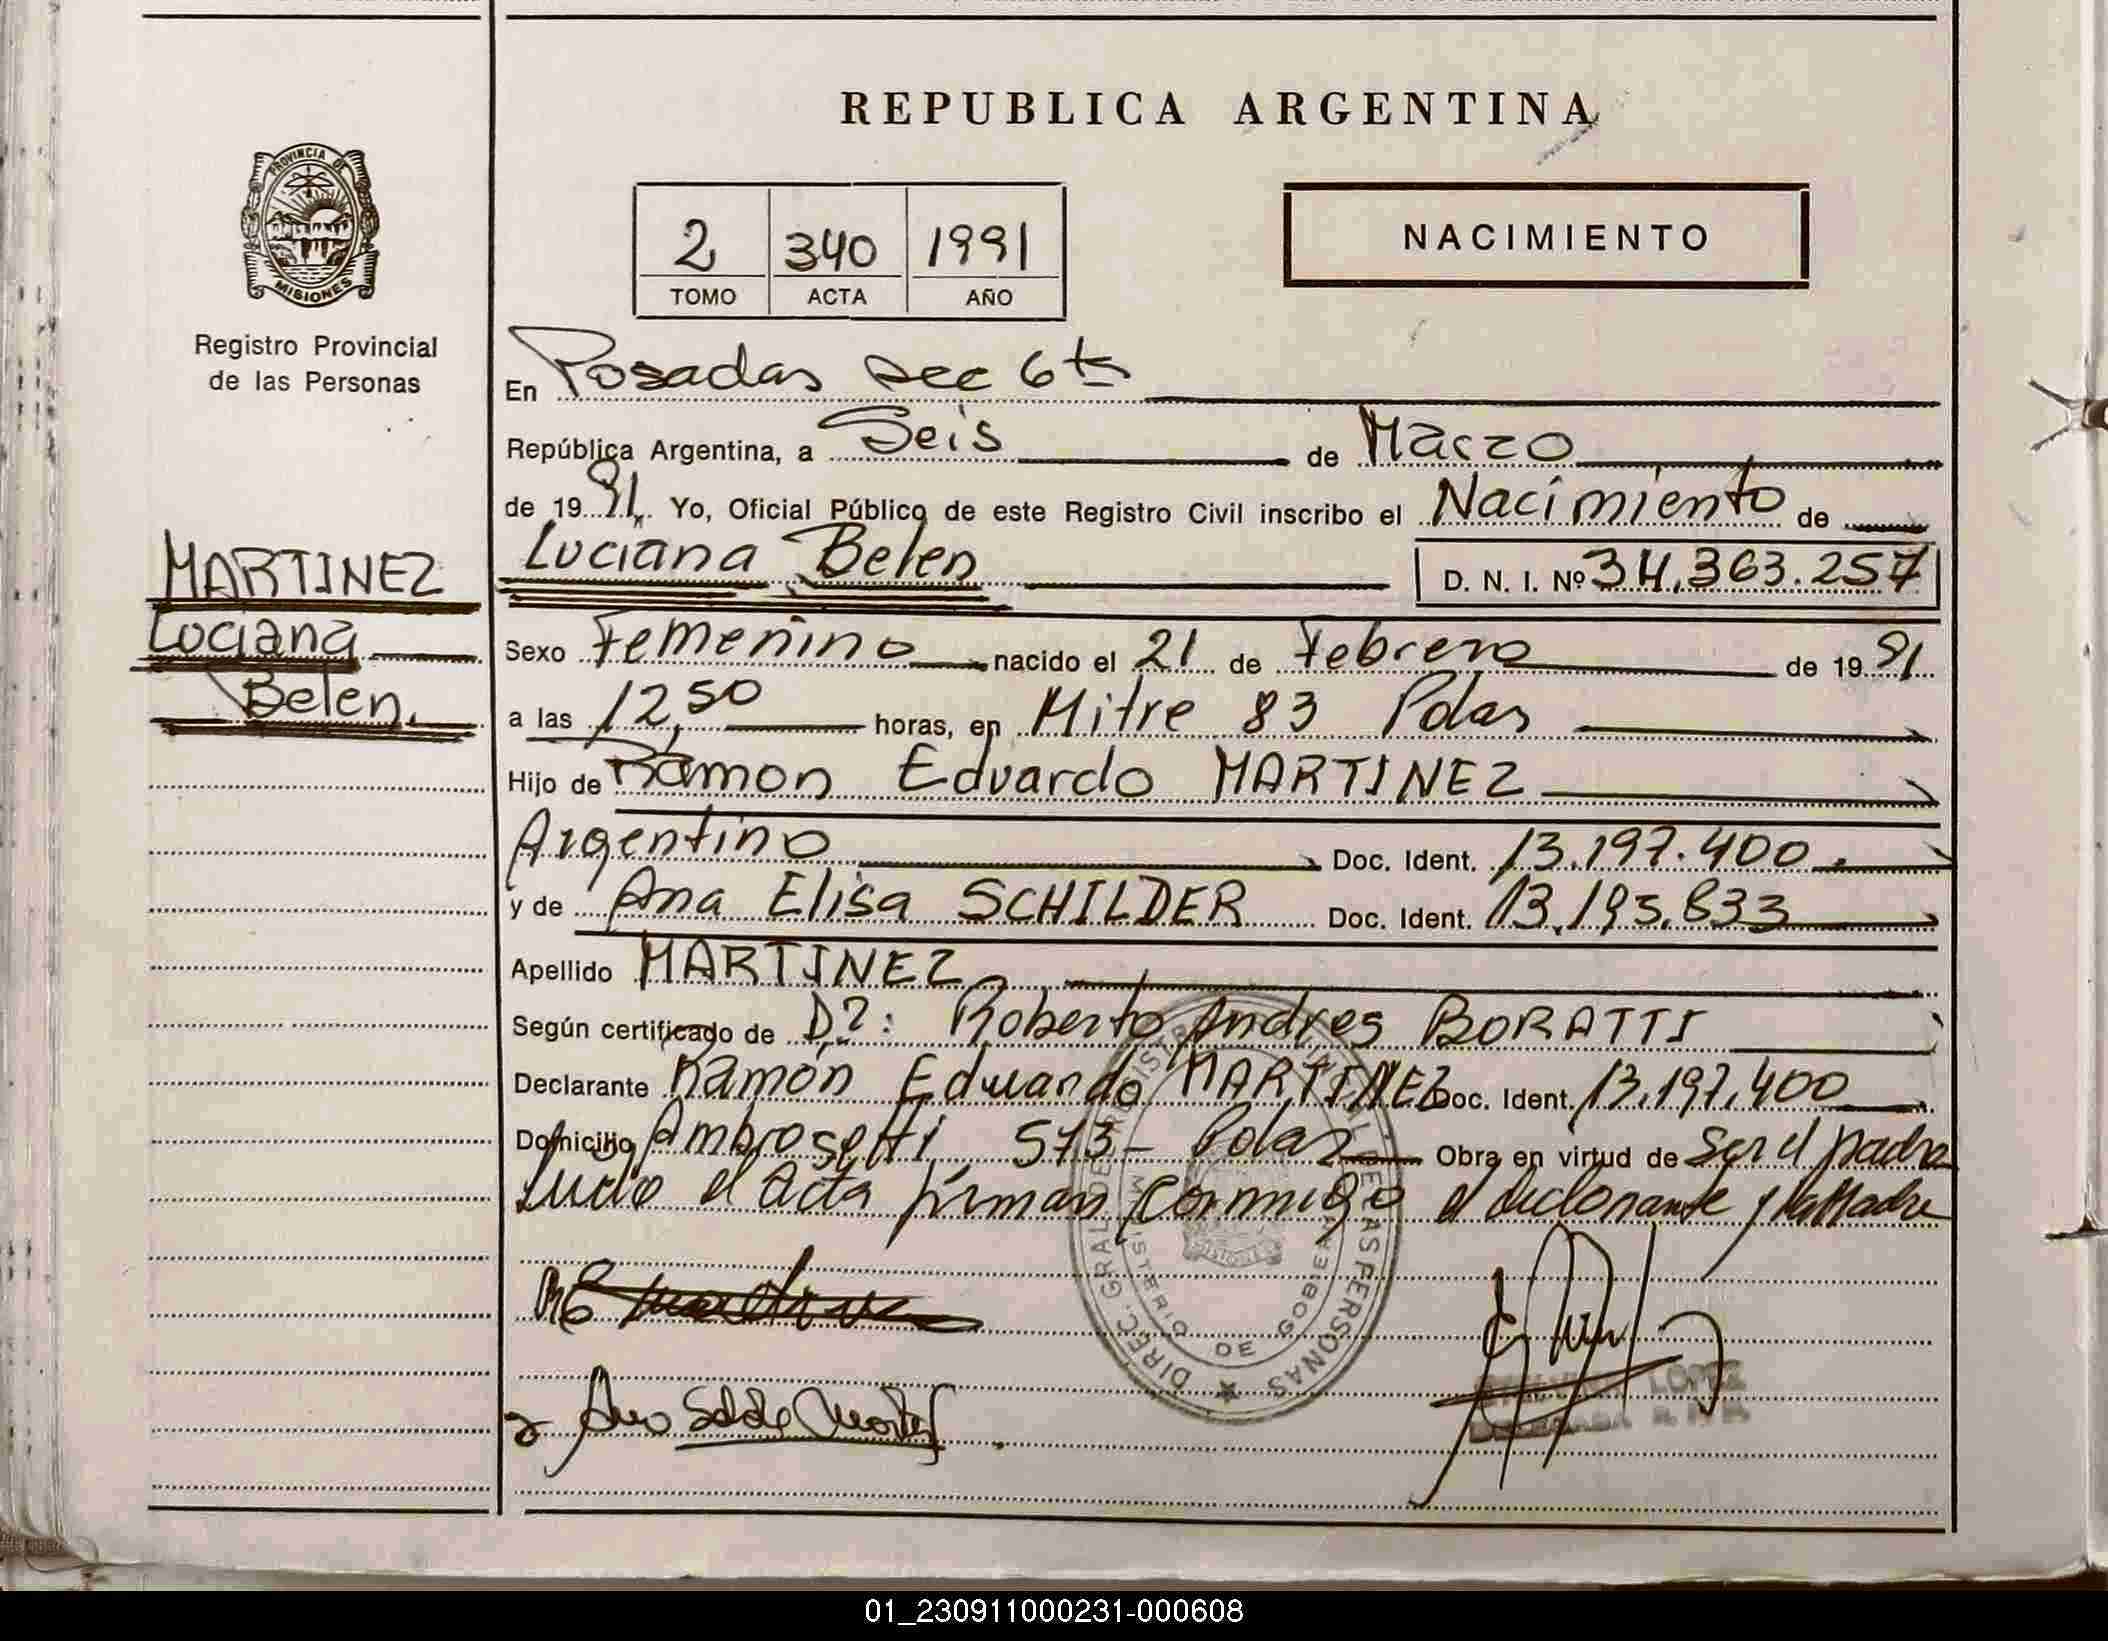 REPUBLICA ARGENTINA
PROVINCIA DE
MISIONES
Registro Provincial
de las Personas
2 340 1991
TOMO ACTA AÑO
NACIMIENTO
En Posadas sec 6ta
República Argentina, a Seis de Marzo
de 1991. Yo, Oficial Público de este Registro Civil inscribo el Nacimiento de
Luciana Belen D. N. I. Nº 34.363.257
MARTINEZ
Luciana
Belen.
Sexo Femenino nacido el 21 de Febrero de 1991
a las 12,50 horas, en Mitre 83 Pdas
Hijo de Ramon Eduardo MARTINEZ
Argentino Doc. Ident. 13.197.400.
y de Ana Elisa SCHILDER Doc. Ident. 13.195.833
Apellido MARTINEZ
Según certificado de Dr: Roberto Andres BORATTI
Declarante Ramón Eduardo MARTINEZ Doc. Ident. 13.197.400
Domicilio Ambrosetti 573 - Pdas Obra en virtud de Ser el padre
Leida el acta firman conmigo el declarante y la Madre
DIREC. GRAL DE REGISTRO DE LAS PERSONAS
MINISTERIO DE GOBIERNO
MISIONES
LOPEZ
01_230911000231-000608